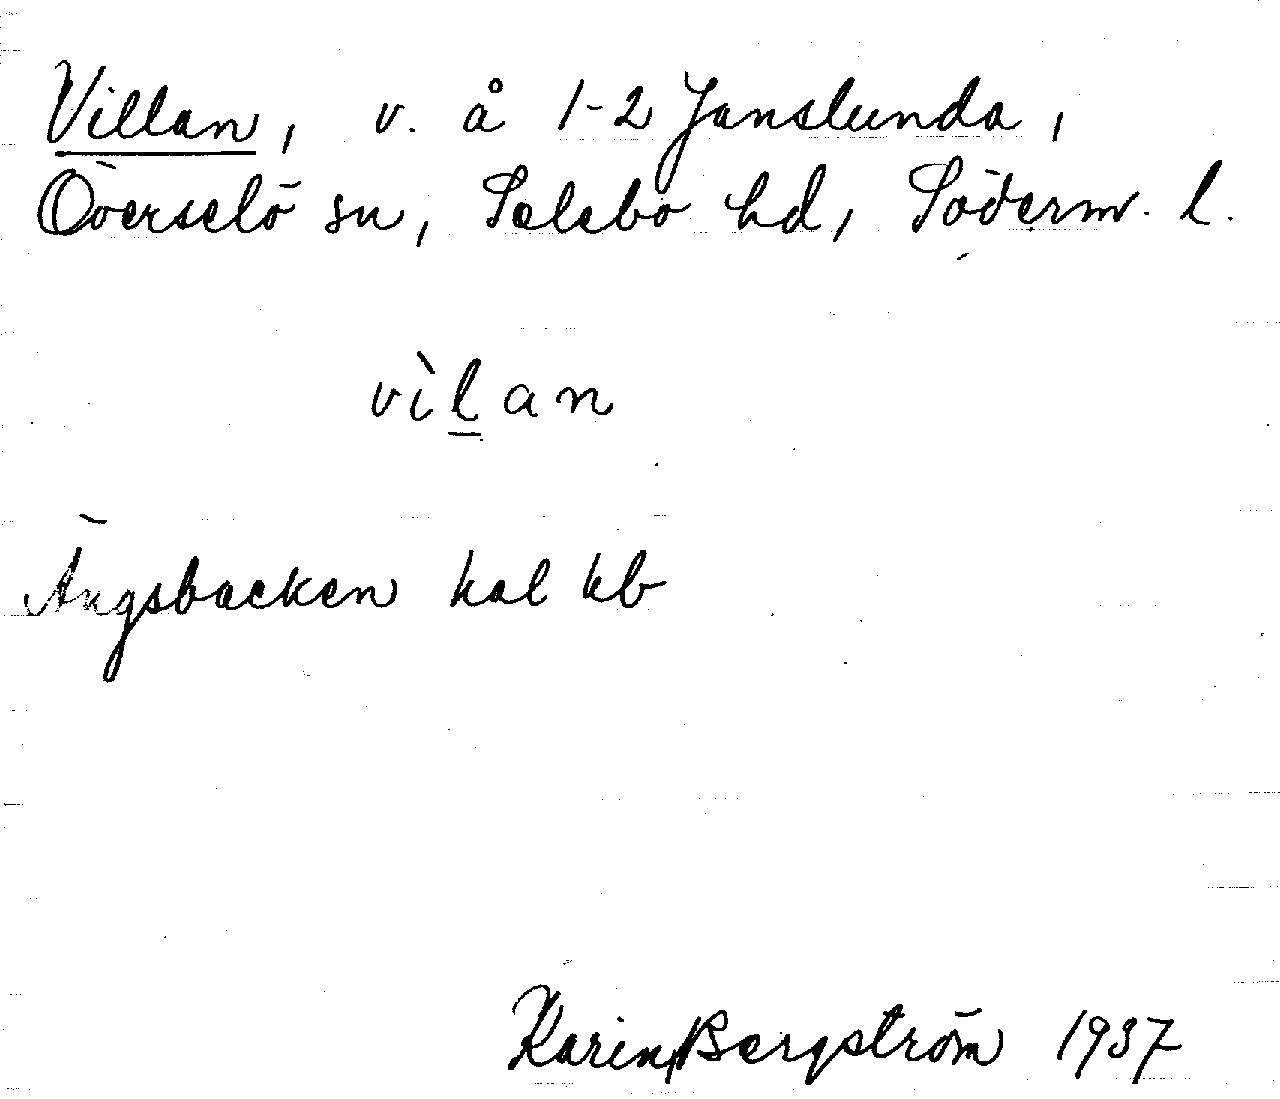 Villan, v. å 1-2 Janslunda,
Överselö sn, Selebo hd, Söderm. l.
vìlan
Ängsbacken kal kb
Karin Bergström 1937